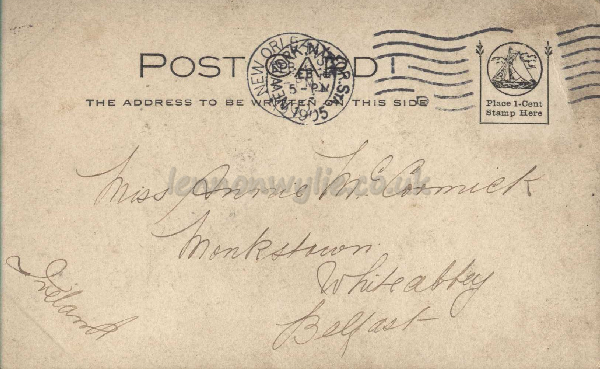 POST CARD
THE ADDRESS TO BE WRITTEN THIS SIDE
NEW ORL
NEW YORK, N.Y.
P.O. STA.
FEB
5-PM
1905
Place 1-Cent
Stamp Here
lennonwylie.co.uk
Miss Annie McCormick
Monkstown
Whiteabbey
Belfast
Ireland